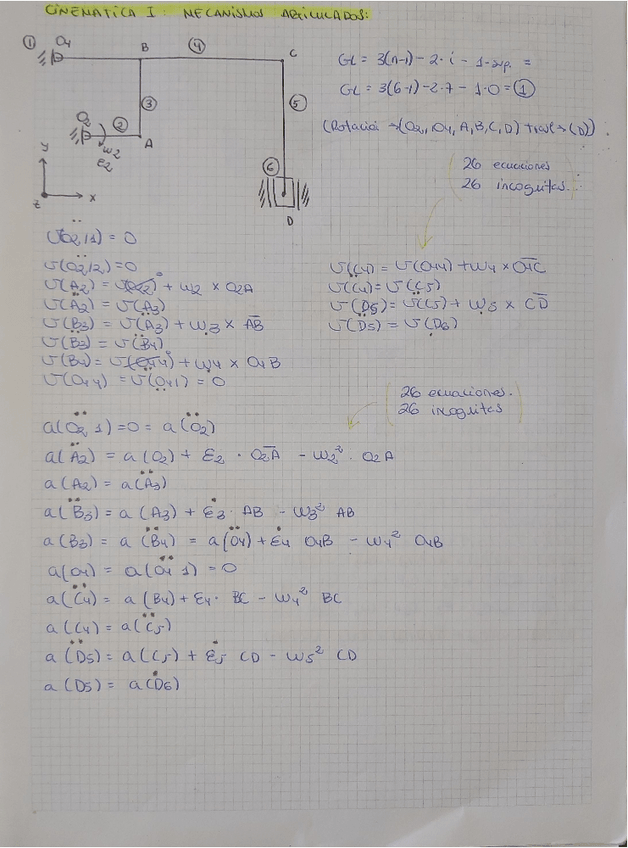 CINEMATICA I: MECANISMOS ARTICULADOS:
① O4 B ④ C
GL = 3(n-1) - 2·i - 1·sup. =
GL = 3(6-1) - 2·7 - 1·0 = ①
③ ⑤
O2 ② A
ω2
ε2
(Rotación → (O2, O4, A, B, C, D) trasl → (D)).
y
x
z
⑥
D
26 ecuaciones
26 incognitas.
v(O2,1) = 0
v(O2,2) = 0
v(A2) = v(O2)⁰ + ω2 × O2A
v(A2) = v(A3)
v(B3) = v(A3) + ω3 × AB
v(B3) = v(B4)
v(B4) = v(O44)⁰ + ω4 × O4B
v(O44) = v(O41) = 0
v(C4) = v(O44) + ω4 × O4C
v(C4) = v(C5)
v(D5) = v(C5) + ω5 × CD
v(D5) = v(D6)
26 ecuaciones.
26 incognitas
a(O2,1) = 0 = a(O2)
a(A2) = a(O2) + ε2 · O2A - ω2² · O2A
a(A2) = a(A3)
a(B3) = a(A3) + ε3 · AB - ω3² AB
a(B3) = a(B4) = a(O4) + ε4 O4B - ω4² O4B
a(O4) = a(O4 1) = 0
a(C4) = a(B4) + ε4 · BC - ω4² BC
a(C4) = a(C5)
a(D5) = a(C5) + ε5 CD - ω5² CD
a(D5) = a(D6)